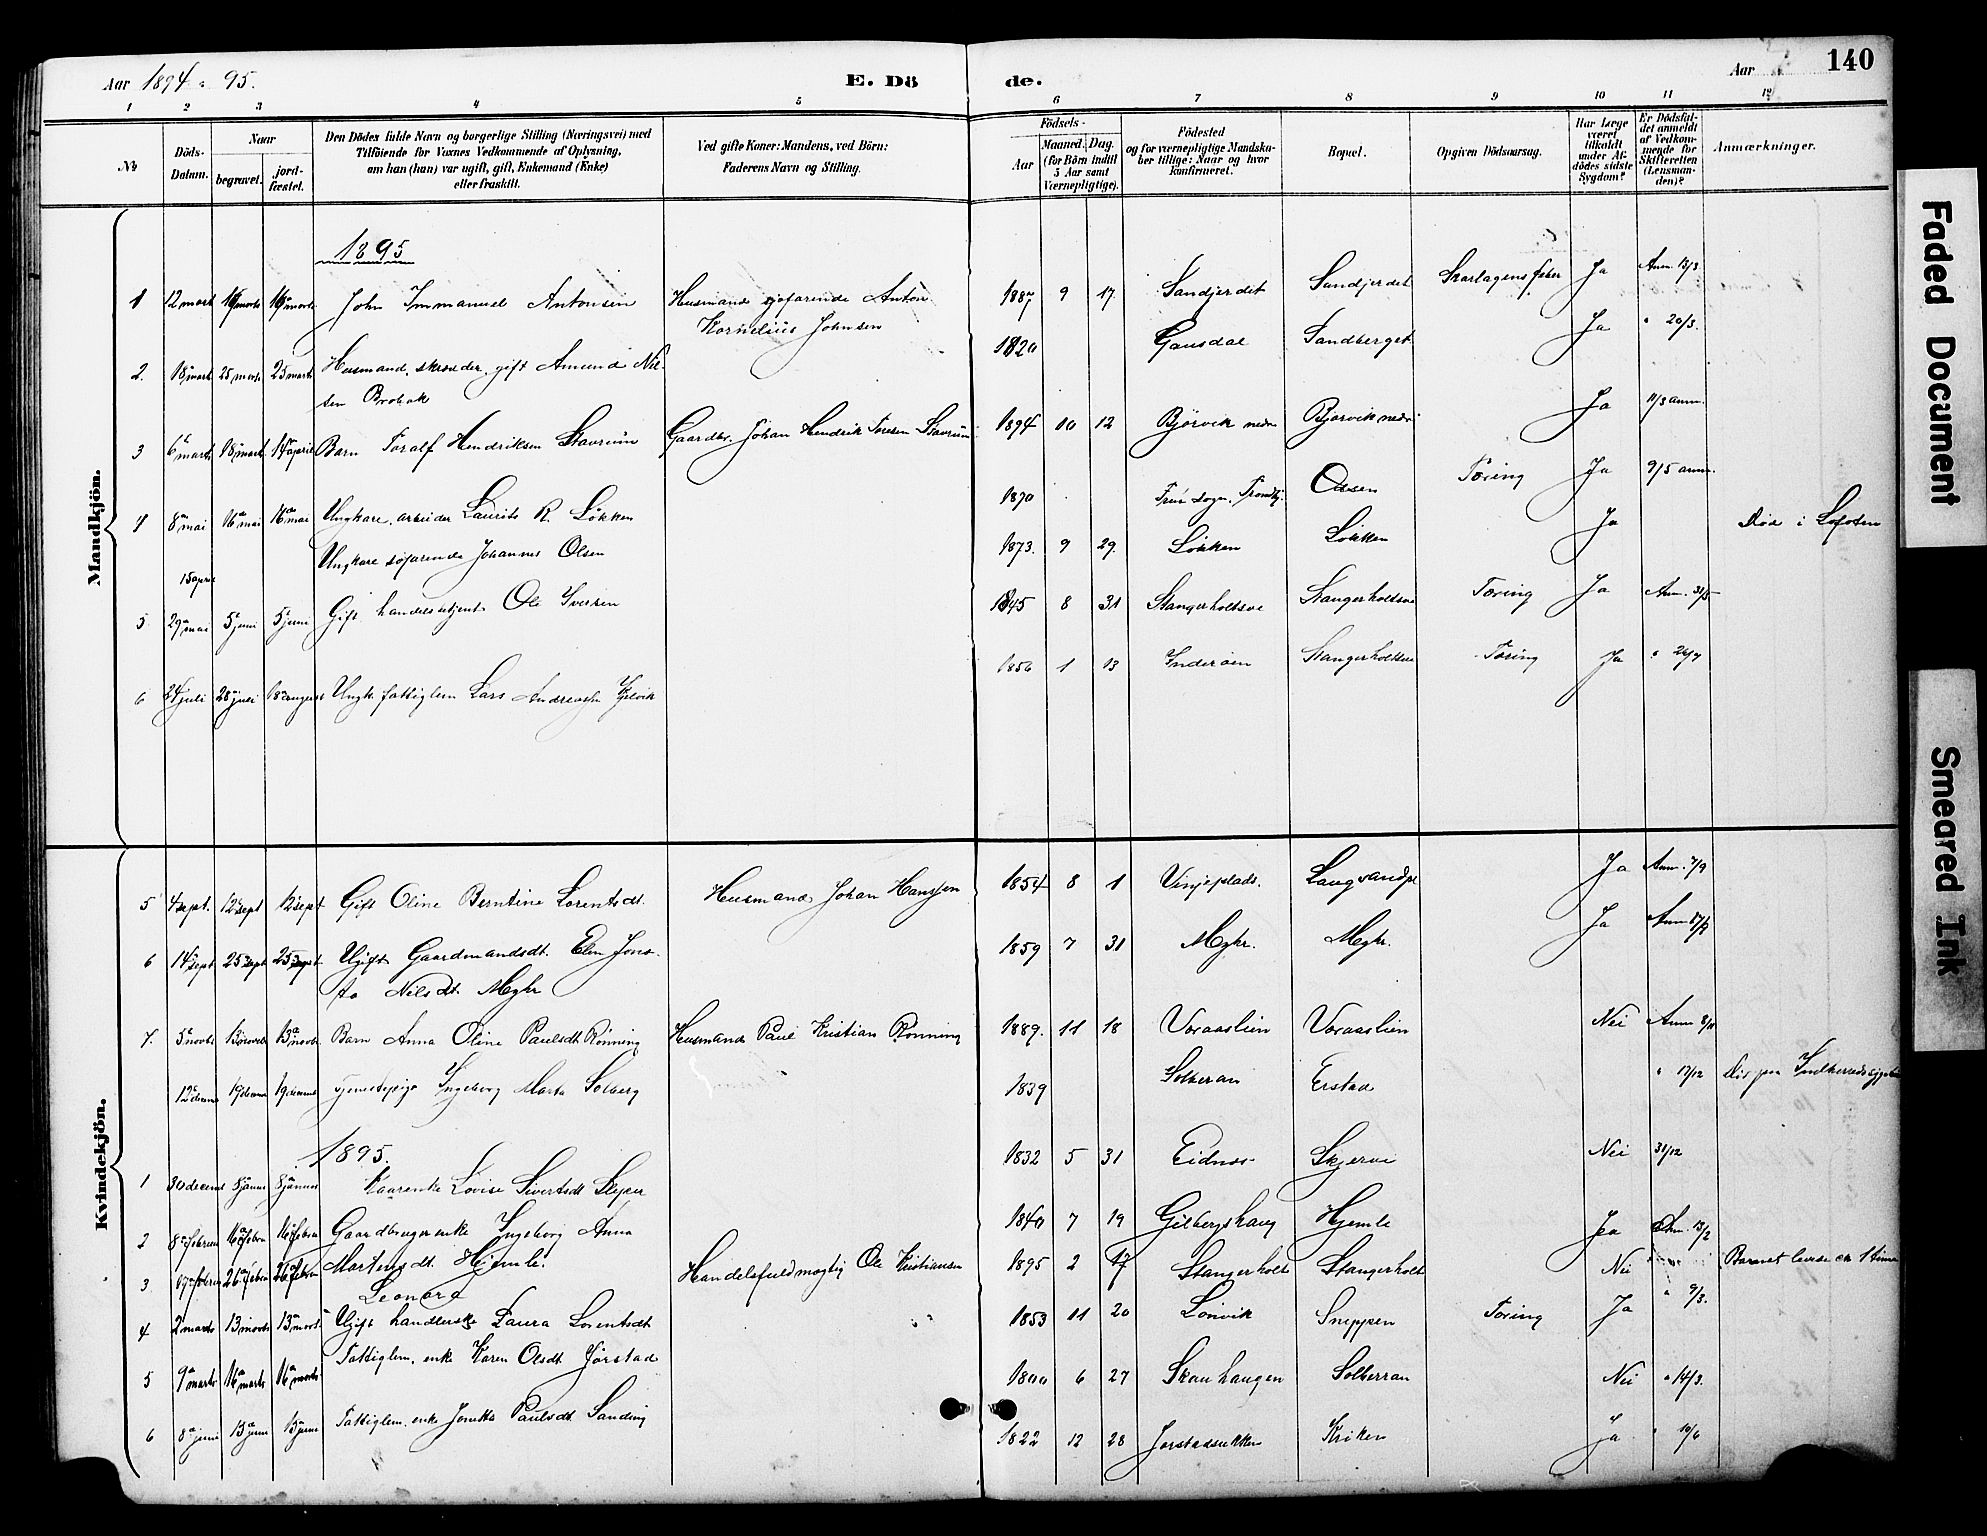 Aar 1894-95.
E. Dö
de.
Aar
140
1 2 3 4 5 6 7 8 9 10 11 12
№
Döds-Datum.
Naar
begravet.
jord-fæstet.
Den Dödes fulde Navn og borgerlige Stilling (Næringsvei) med
Tilföiende for Voxnes Vedkommende af Oplysning,
om han (hun) var ugift, gift, Enkemand (Enke)
eller fraskilt.
Ved gifte Koner: Mandens, ved Börn:
Faderens Navn og Stilling.
Födsels-
Aar
Maaned. Dag.
(for Börn indtil
5 Aar samt
Værnepligtige).
Födested
og for værnepligtige Mandska-
ber tillige: Naar og hvor
konfirmeret.
Bopæl.
Opgiven Dödsaarsag.
Har Læge
været
tilkaldt
under Af-
dödes sidste
Sygdom?
Er Dödsfal-
det anmeldt
af Vedkom-
mende for
Skifteretten
(Lensman-
den)?
Anmærkninger.
Mandkjön.
1895
1 12 marts 16 marts 16 marts John Immanuel Antonsen Husmand sjøfarende Anton 1887 9 17 Sandjerdet Sandjerdet Skarlagensfeber Ja Anm. 13/3
Kornelius Johnsen
2. 18 marts 25 marts 25 marts Husmand, skræder, gift Amund Nil- 1820 Gausdal Sandberget Ja " 20/3.
sen Brobak
3 6 marts 18 marts 14 april Barn Toralf Hendriksen Stavrum Gaardbr. Johan Hendrik Stavrum 1894 10 12 Bjørvik nedr Bjørvik nedr Ja 11/3 anm.
4 8 mai 16 mai 16 mai Ungkare, arbeider Laurits R. Løkken 1870 sogn, Trondhj. Tæring Ja 9/5 anm.
15 april Ungkare søfarende Johannes Olsen 1873. 9 29. Løkken Løkken Ja Død i Lofoten
5 29 mai 5 juni 5 juni Gift handelsbetjent Ole Iversen 1845 8 31 Stangerholtsve Stangerholtsve Tæring Ja Anm. 31/5
6 24 juli 28 juli 18 august Ungk. fattiglem Lars Andreassen 1856 1 13 Inderøen Stangerholtsve Tæring Ja " 26/7
Kvindekjön.
5 4 sept. 12 sept 12 sept Gift Oline Berntine Lorentsdt. Husmand Johan Hanssen 1854 8 1 Vinjeplads. Langvandpl Ja Anm. 7/9
6 14 sept 25 sept 25 sept Ugift Gaardmandsdt. Elen Jons- 1859 7 31 Mghr. Mghr. Ja Anm 17/9
ta Nilsdt. Mghr
7. 5 novbr 13 novbr 13 novbr. Barn Anna Oline Paulsdt Rønning Husmand Paul Kristian Rønning 1889. 11 18 Voraaslien Voraaslien Nei Anm 8/11
12 decemb 19 decemb 19 decemb tjenestepige Ingeborg Marta Solberg 1839 Solberan Erstad " 17/12
1895.
1 30 decemb 8 januar 8 januar Kaarenke Lovise Sivertsdt 1832 5 31 Eidnes Skjerve Nei 31/12
2 8 februar 16 febru 16 febru Gaardbrugerenke Ingeborg Anna 1840 7 19 Gilbergshaug Hjemle Ja Anm. 13/2
Martensdt. Hjemle.
3 17 februar 26 febru 26 febru Leonora Handelsfuldmægtig Ole Kristiansen 1895 2 17 Stangerholt Stangerholt Nei Barnet levede en 1 time
4 2 marts 13 marts 13 marts Ugift handlerske Laura Lorentsdt 1853 11 20 Lorvik Snippen Tæring Ja " 9/3.
5 9 marts 16 marts 16 marts Fattiglem. enke Karen Olsdt Jørstad 1800 6 27 Skauhaugen Solberran Nei " 14/3.
6 8 juni 13 juni 13 juni Fattiglem. enke Paulsdt. Sanding 1822 12 28 Jørstadsrækken Kriken Ja " 10/6
Faded Document
Smeared Ink